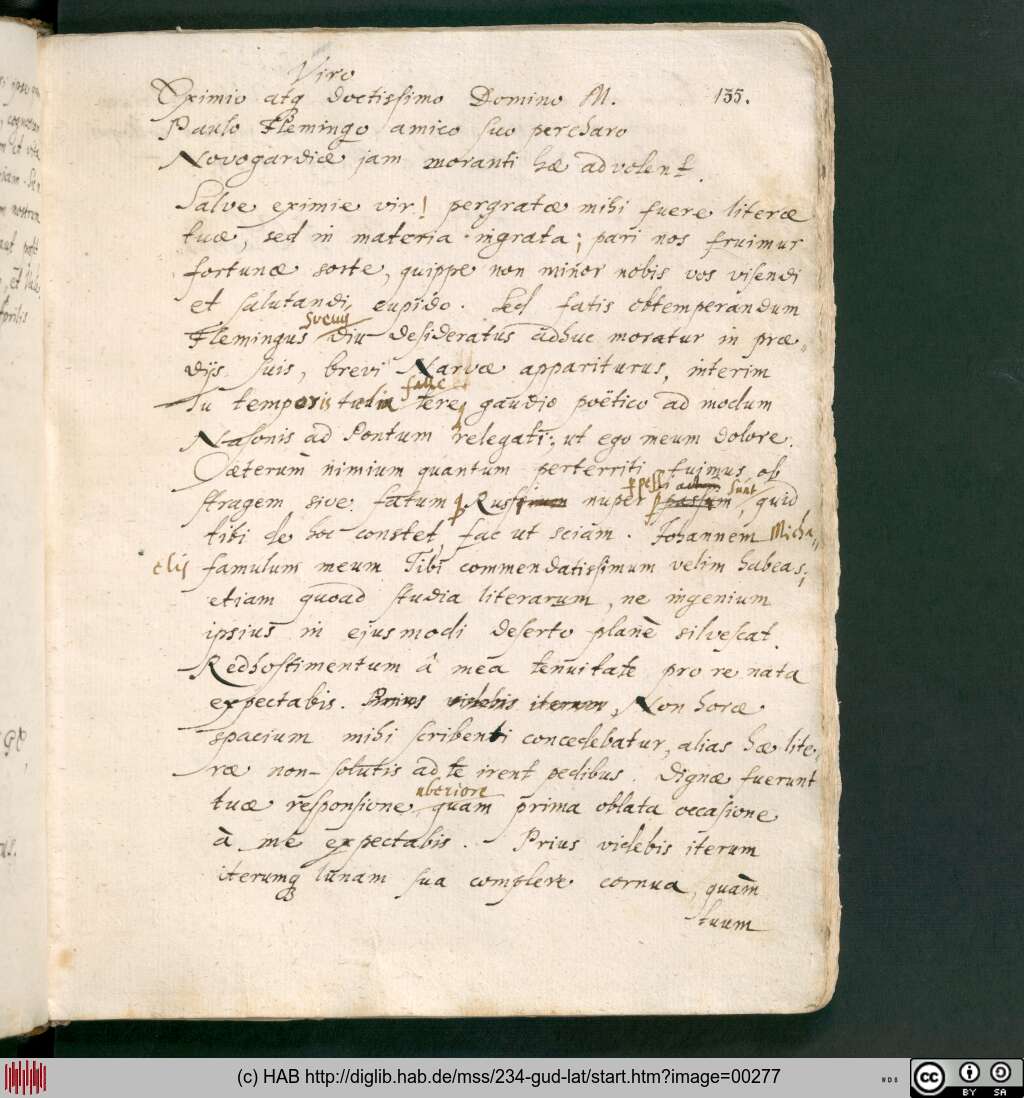 Viro
Eximio atq doctissimo Domino M. 135.
Paulo Flemingo amico suo percharo
Novogardiæ jam moranti hæ advolent.
Salve eximie vir! pergratæ mihi fuere literæ
tuæ, sed in materia ingrata; pari nos fruimur
fortunæ sorte, quippe non minor nobis vos visendi
et salutandi cupido. Sed fatis obtemperandum
Flemingus diu desideratus adhuc moratur in præ„
dijs suis, brevi Narvæ appariturus, interim
Tu temporis tædia falle
tere, gaudio poëtico ad modum
Nasonis ad Pontum relegati; ut ego meum dolore.
Cæterum nimium quantum perterriti fuimus ob
stragem sive fatum nuper sunt, quid
tibi de hoc constet, fac ut sciam. Johannem Micha„
elis famulum meum Tibi commendatissimum velim habeas;
etiam quoad studia literarum, ne ingenium
ipsius in ejusmodi deserto planè silvescat.
Redhostimentum â mea tenuitate pro re nata
expectabis. Prius videbis iterum, Non horæ
spacium mihi scribenti concedebatur, alias hæ lite„
ræ non solutis ad te irent pedibus. Dignæ fuerunt
tuæ responsione uberiore quam prima oblata occasione
à me expectabis. Prius videbis iterum
iterumq lunam sua complere cornua, quàm
tuum
(c) HAB http://diglib.hab.de/mss/234-gud-lat/start.htm?image=00277
cc BY SA